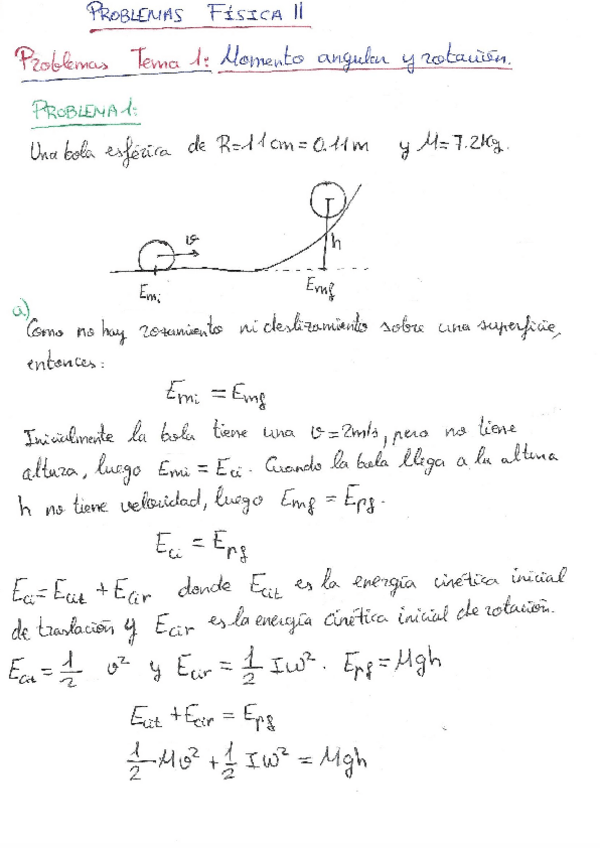 PROBLEMAS FÍSICA II
Problemas Tema 1: Momento angular y rotación.
PROBLEMA 1:
Una bola esférica de R=11cm=0.11m y M=7.2Kg.
v
h
Emi
Emf
a)
Como no hay rozamiento ni deslizamiento sobre una superficie,
entonces:
Emi = Emf
Inicialmente la bola tiene una v=2m/s, pero no tiene
altura, luego Emi = Eci. Cuando la bola llega a la altura
h no tiene velocidad, luego Emf = Epf.
Eci = Epf
Eci = Ecit + Ecir donde Ecit es la energía cinética inicial
de traslación y Ecir es la energía cinética inicial de rotación.
Ecit = 1/2 v² y Ecir = 1/2 Iω². Epf = Mgh
Ecit + Ecir = Epf
1/2 Mv² + 1/2 Iω² = Mgh